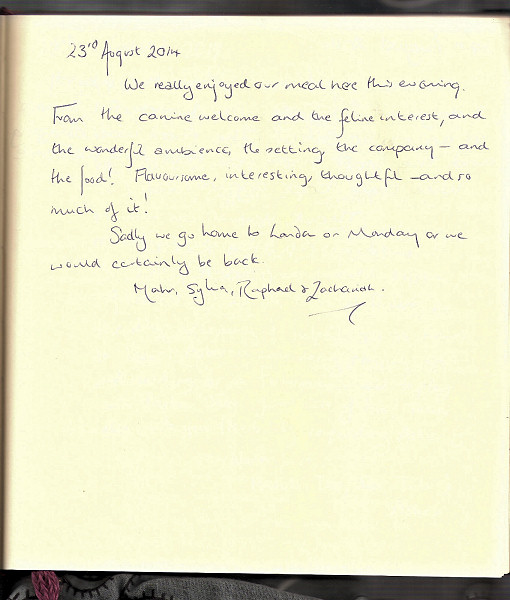 23rd August 2014
We really enjoyed our meal here this evening.
From the canine welcome and the feline interest, and
the wonderful ambience, the setting, the company – and
the food! Flavoursome, interesting, thoughtful – and so
much of it!
Sadly we go home to London on Monday or we
would certainly be back.
Sylvia, Raphael & Zachariah.